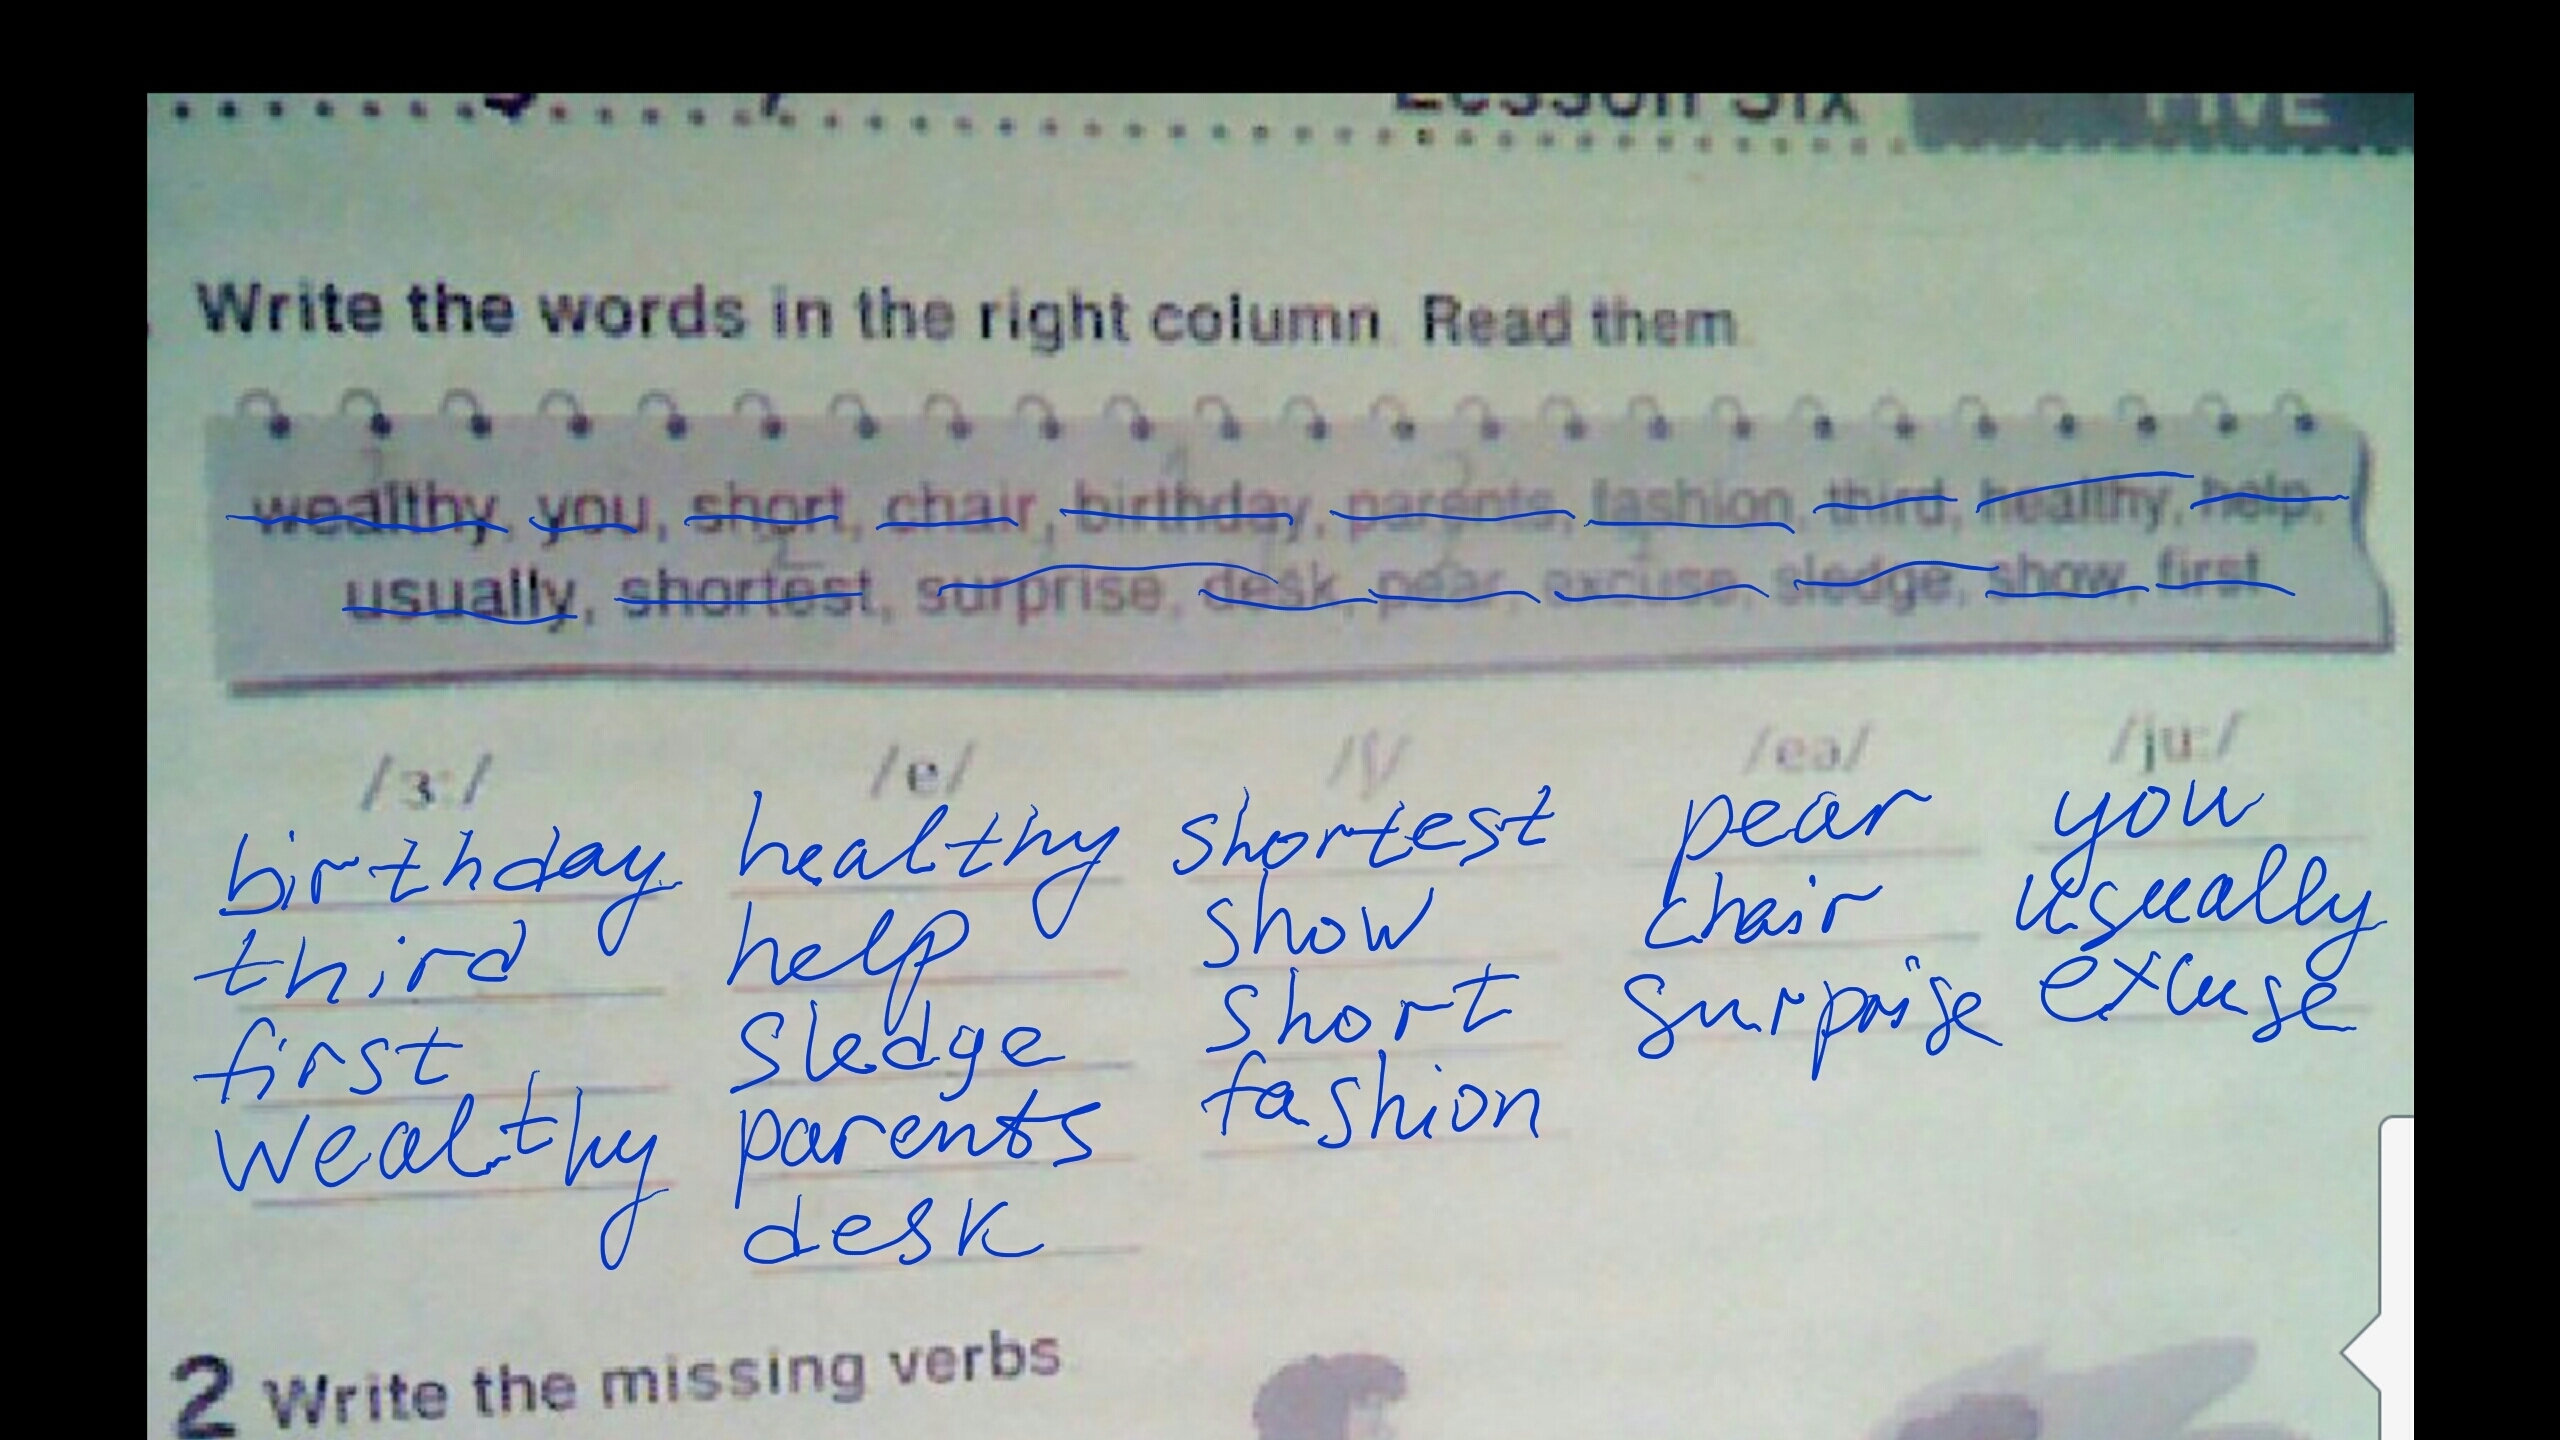 Lesson Six FIVE
Write the words in the right column. Read them.
wealthy, you, short, chair, birthday, parents, fashion, third, healthy, help,
usually, shortest, surprise, desk, pear, excuse, sledge, show, first
/ɜ:/ /e/ /ʃ/ /eə/ /ju:/
birthday healthy shortest pear you
third help show chair usually
first sledge short surprise excuse
wealthy parents fashion
desk
2 Write the missing verbs